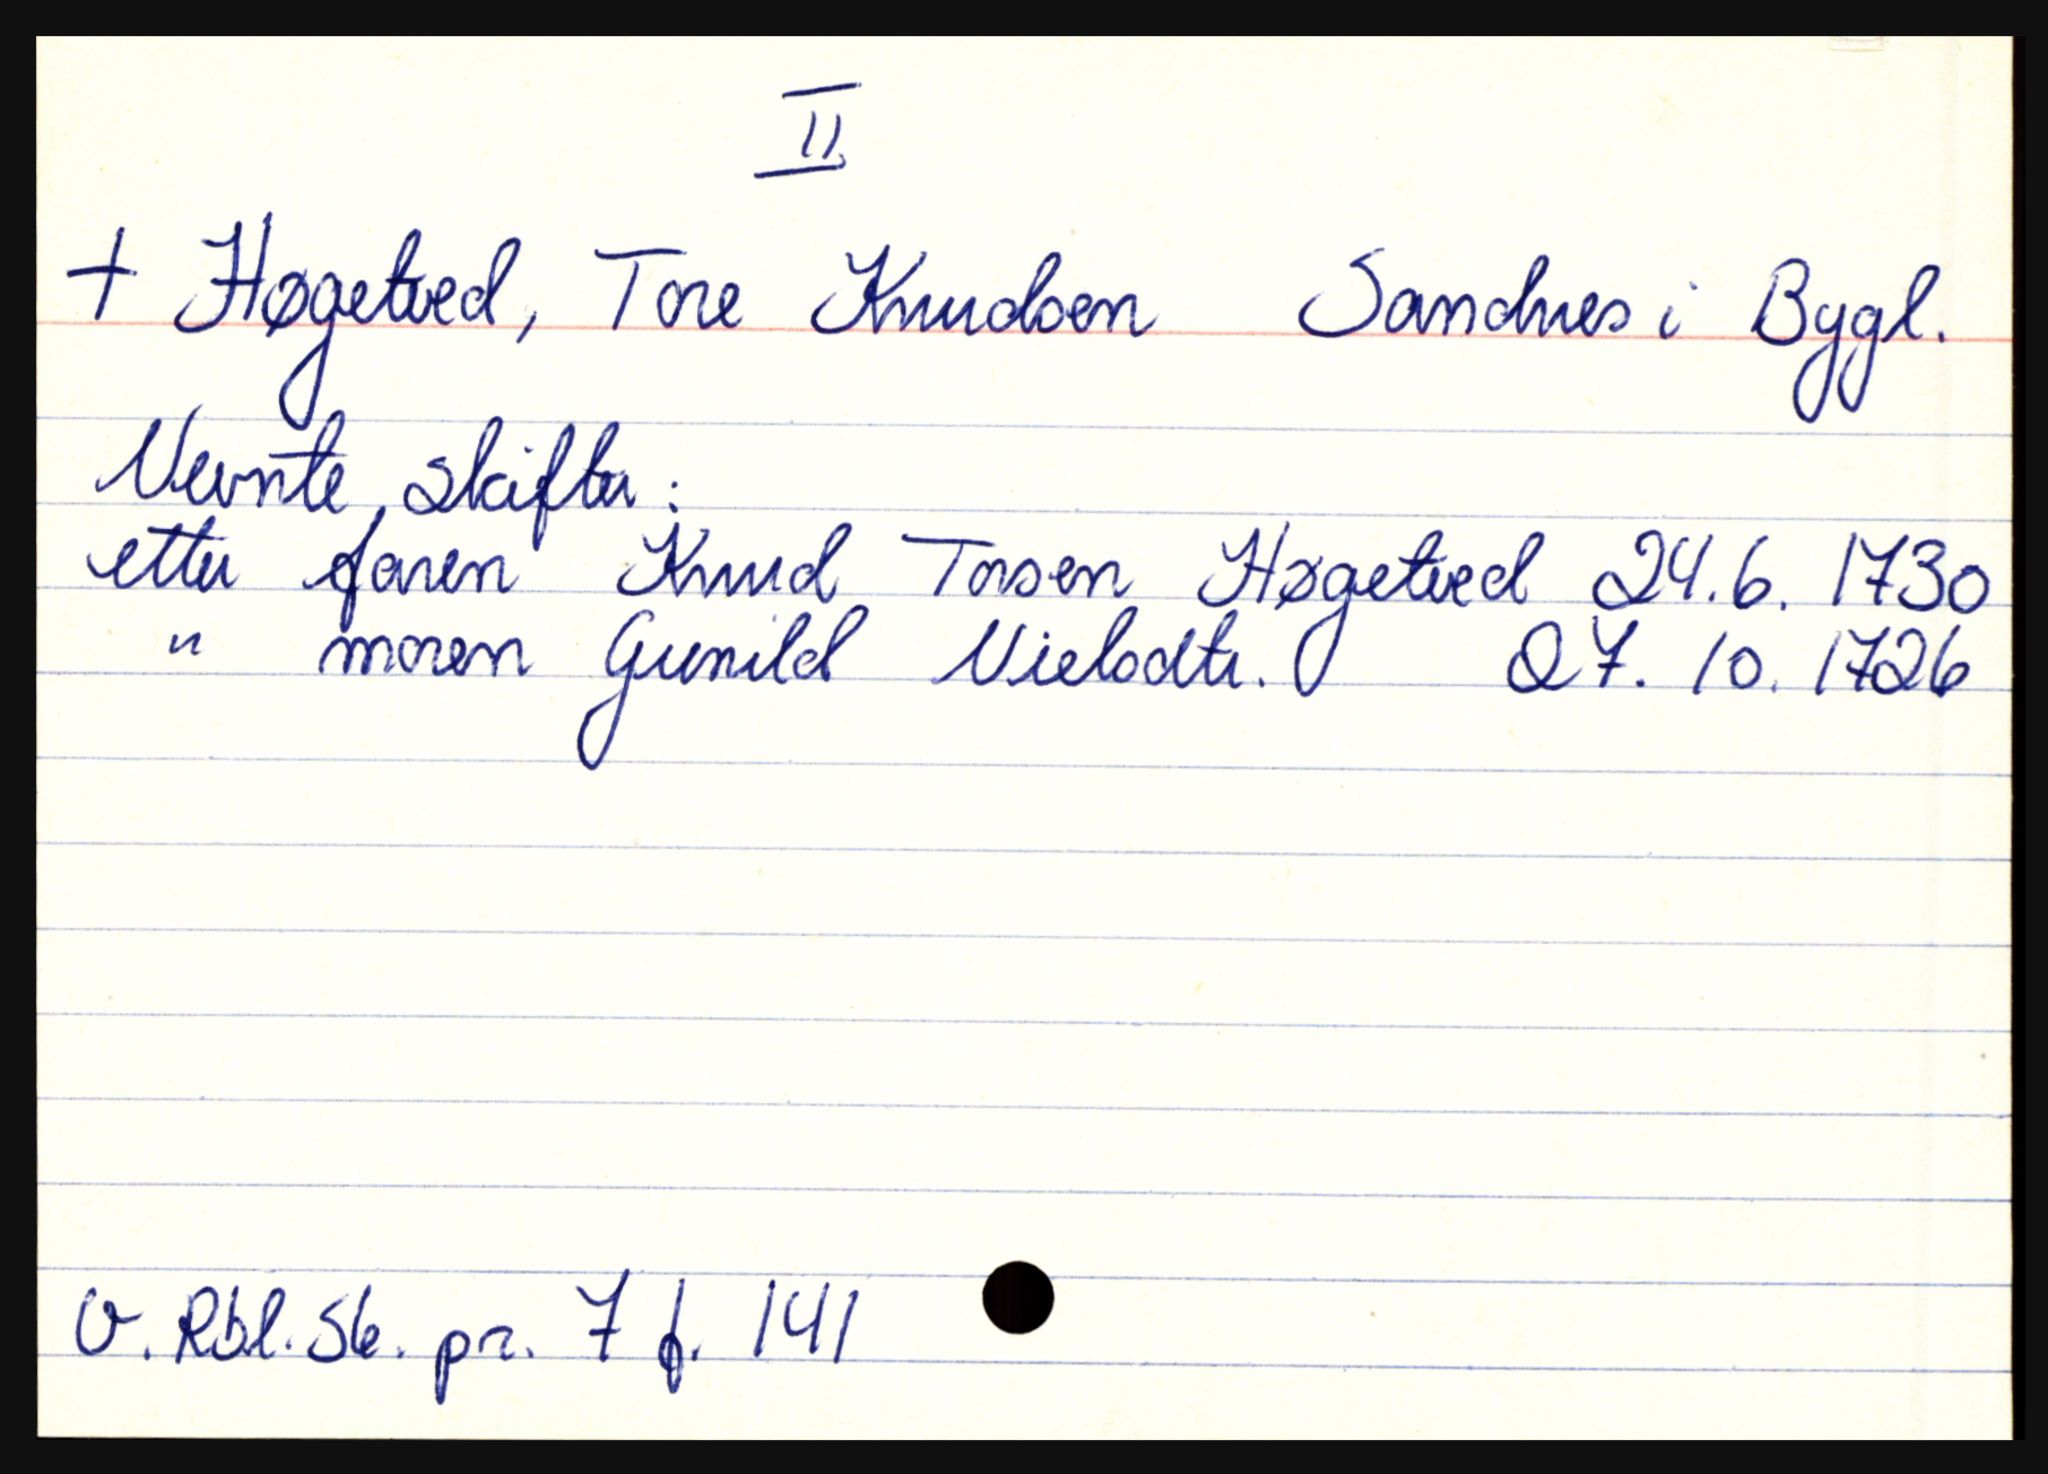 II
+ Høgetved, Tore Knudsen Sandnes i Bygl.
Nevnte skifter:
etter faren Knud Torsen Høgetved 24.6. 1730
" moren Gunild Nielsdtr. 27. 10. 1726
V. Rbl. Sk. pr. 7 f. 141